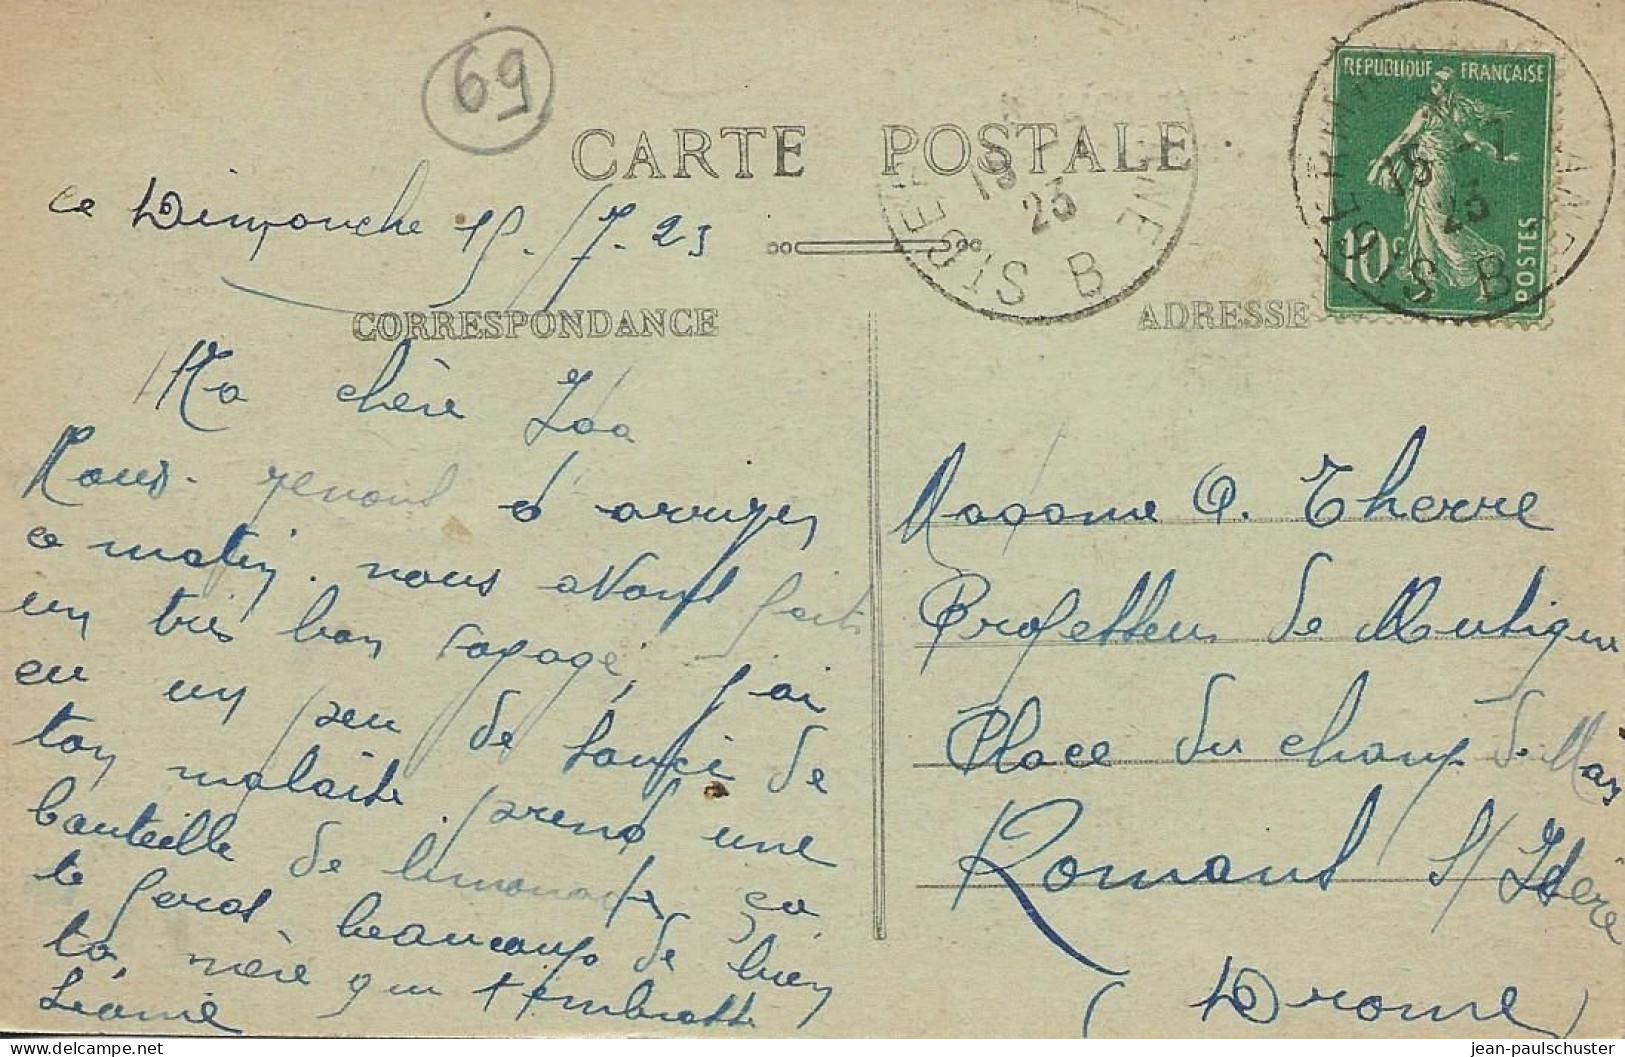 69
CARTE POSTALE
REPUBLIQUE FRANÇAISE
10c
POSTES
15 - 7
23
ST B
15
23
ST B
ce Dimanche 15 - 7 - 23
CORRESPONDANCE
ADRESSE
Ma chère Ida
Nous venont d'arrivez
ce matin. nous avont fait
un très bon voyage, j'ai
eu un peu de souci de
ton malaise prend une
bouteille de limonade ça
te feras beaucoup de bien
ta mère qui t'embrasse
Léonie
Madame O. Therre
Professeur de Mutique
Place du champ de Mars
Romans s/ Isère
(Drome)
jean-paulschuster